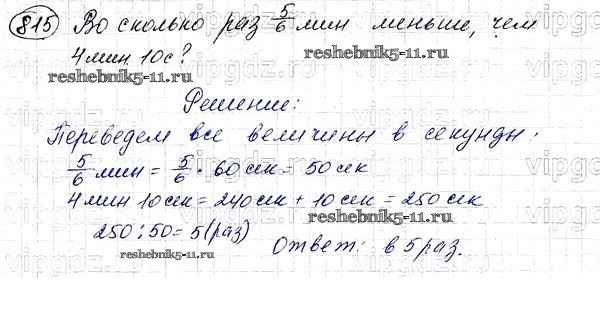 815 Во сколько раз 5/6 мин меньше, чем
4 мин 10с?
reshebnik5-11.ru
reshebnik5-11.ru
Решение:
Переведем все величины в секунды.
5/6 мин = 5/6 · 60 сек = 50 сек
4 мин 10 сек = 240 сек + 10 сек = 250 сек
reshebnik5-11.ru
250 : 50 = 5 (раз)
Ответ: в 5 раз.
reshebnik5-11.ru